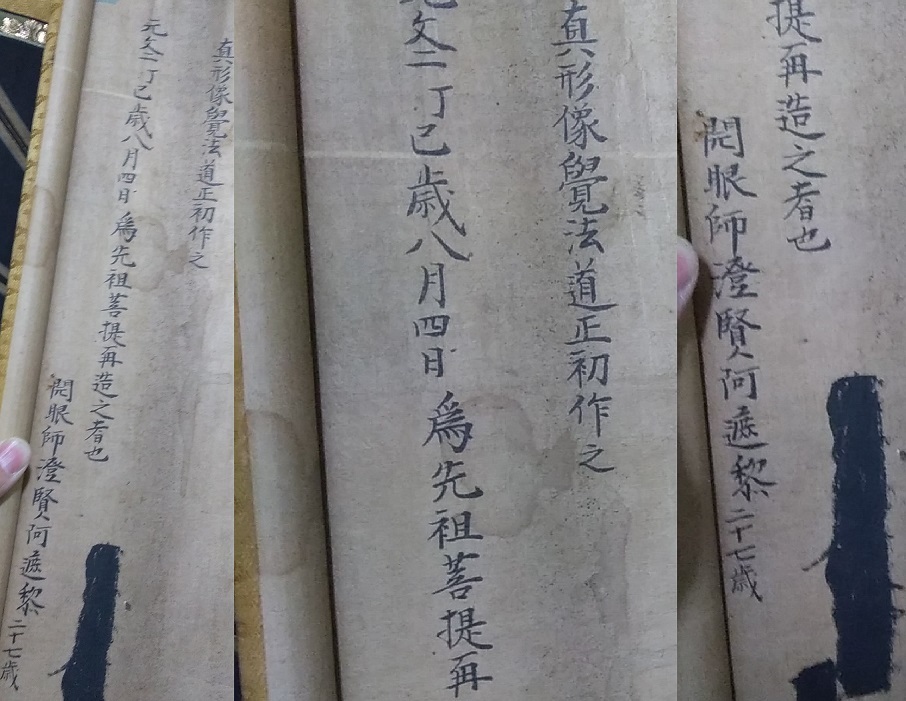 真形像覺法道正初作之
元文二丁巳歳八月四日 爲先祖菩提再造之者也
開眼師澄賢阿遮黎二十七歳
真形像覺法道正初作之
元文二丁巳歳八月四日 爲先祖菩提再
提再造之者也
開眼師澄賢阿遮黎二十七歳